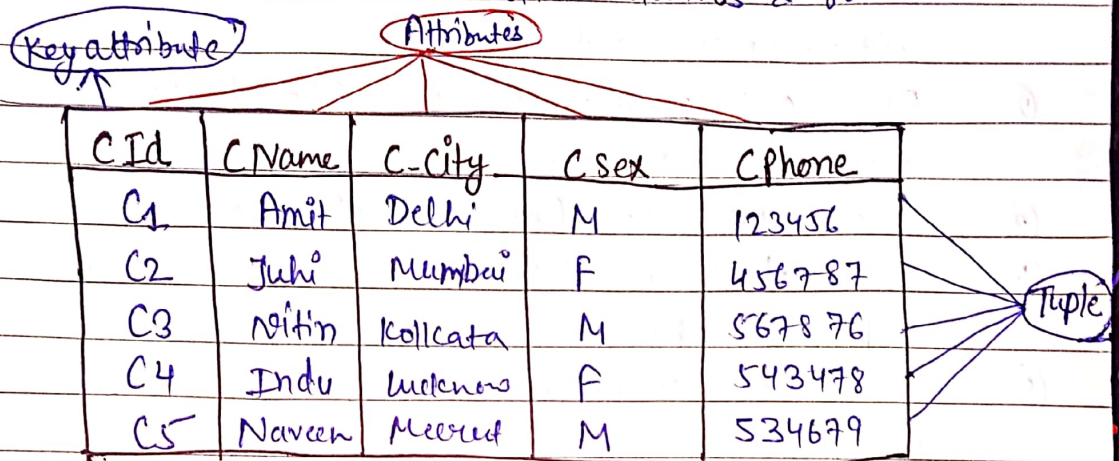 Attributes
Key attribute
C Id C Name C-City C sex C Phone
C1 Amit Delhi M 123456
C2 Juhi Mumbai F 456787
C3 Nitin Kollcata M 567876
C4 Indu Lucknow F 543478
Tuple
C5 Naveen Meerut M 534679